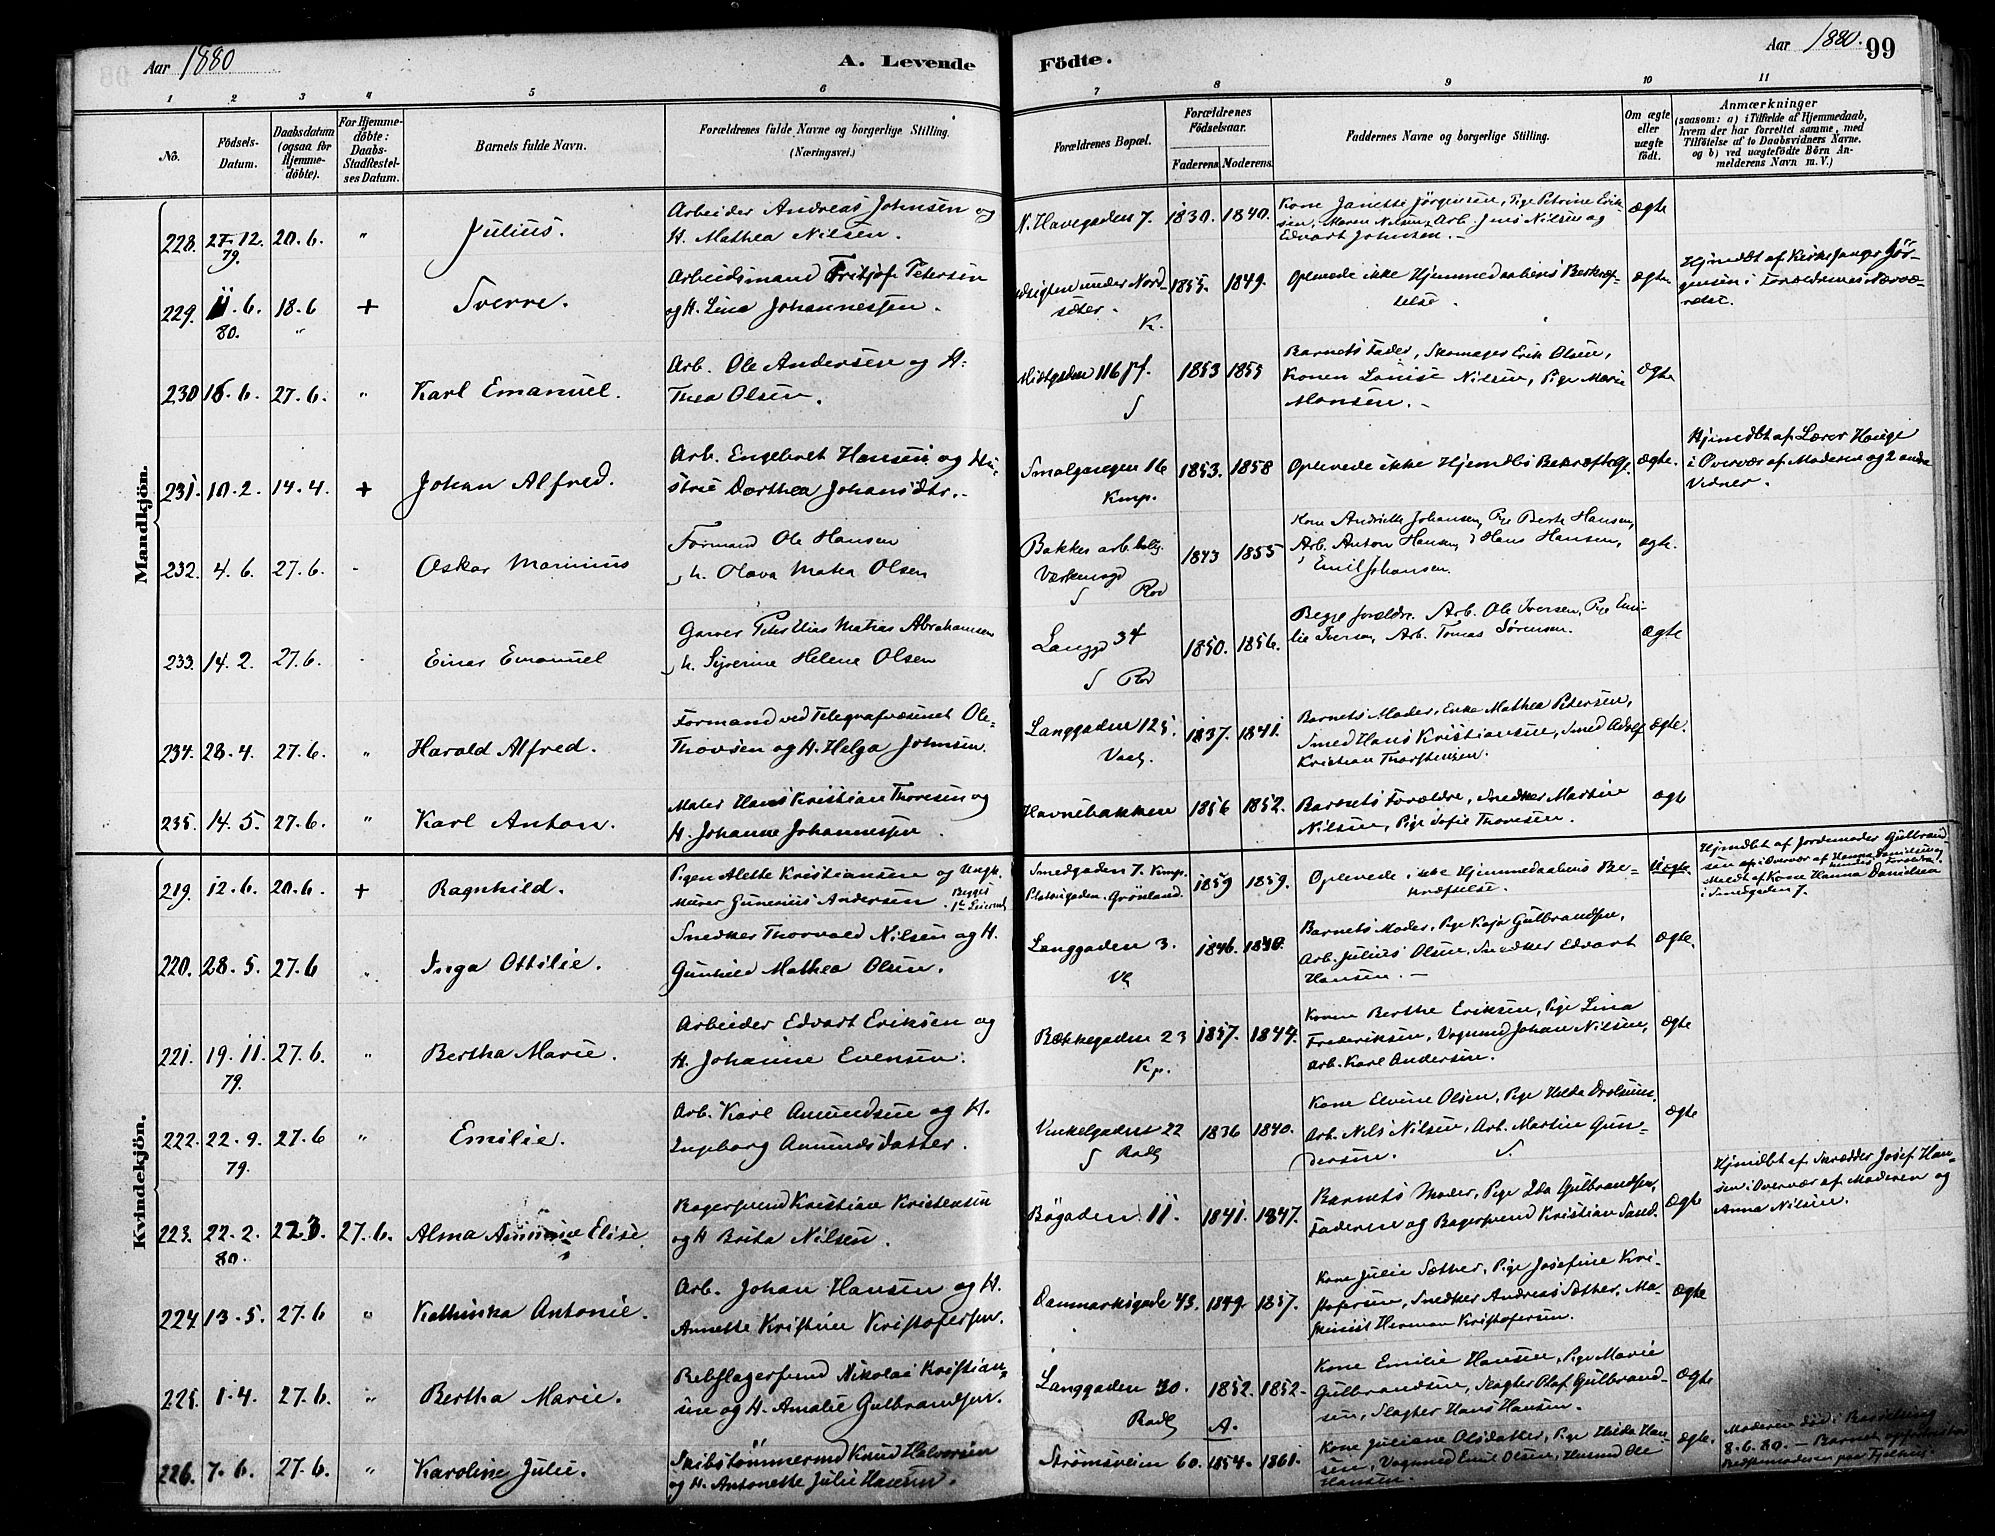 Aar 1880
A. Levende
Födte.
Aar 1880.
99
1 2 3 4 5 6 7 8 9 10 11
No.
Födsels-
Datum.
Daabsdatum
(ogsaa for
Hjemme-
döbte).
For Hjemme-
döbte:
Daabs-
Stadfæstel-
ses Datum.
Barnets fulde Navn.
Forældrenes fulde Navne og borgerlige Stilling.
(Næringsvei.)
Forældrenes Bopæl.
Forældrenes
Födselsaar.
Faderens. Moderens.
Faddernes Navne og borgerlige Stilling.
Om ægte
eller
uægte
födt.
Anmærkninger
(saasom: a) i Tilfælde af Hjemmedaab,
hvem der har forrettet samme, med
Tilföielse af to Daabsvidners Navne.
og b) ved uægtefödte Börn An-
melderens Navn m. V.)
Mandkjön.
228. 27-12. 20.6. " Julius.
79.
Arbeider Andreas Johnsen og
H. Mathea Nilsen.
N. Havegaden 7. 1830. 1840.
Kone Janette Jörgensen, Pige Petrine Erik-
sen, Maren Nilsen, Arb. Jens Nilsen og
Edvart Johnsen. -
ægte
229. 11.6. 18.6 + Sverre.
80.
Arbeidsmand Fritjof Petersen
og H. Lina Johannessen.
Udsigten under Nord-
sæter.
K.
1855. 1849.
Oplevede ikke Hjemmedaabens Bekræf-
telse.
ægte
Hjmdöbt af Kirkesanger Jör-
gensen i Forældrenes Nærvæ-
relse.
230 16.6. 27.6. " Karl Emanuel.
Arb. Ole Andersen og H.
Thea Olsen.
Midtgaden 116
S
1853 1855
Barnets Fader, Skomager Erik Olsen,
Konen Louise Nilsen, Pige Marie
Monsen. -
ægte
231. 10.2. 14.4. + Johan Alfred.
Arb. Engebret Hansen og Hu-
stru Dorthea Johansdtr. -
Smalgangen 16
Kmp.
1853. 1858
Oplevede ikke Hjemdbs Bekræftelse.
ægte.
Hjemdbt af Lærer Hauge
i Overvær af Moderen og 2 andre
Vidner.
232. 4.6. 27.6. - Oskar Marinius
Formand Ole Hansen
h. Olava Matea Olsen
Bakkes arb. bolig.
S
1843 1855
Kone Andrette Johansen, Pge Berte Hansen,
Arb. Anton Hansen, Hans Hansen,
Emil Johansen.
ægte.
233. 14.2. 27.6. - Einar Emanuel
Garver Peter Elias Matias Abrahamsen
h. Syverine Helene Olsen
Langgd 34
S
1850. 1856.
Begge forældre. Arb. Ole Iversen, Pge Emi-
lie Iversen, Arb. Tomas Sørensen.
ægte
234. 28.4. 27.6. " Harald Alfred.
Formand ved Telegrafvæsenet Ole-
Thovsen og H. Helga Johnsen.
Langgaden 125.
1837. 1841.
Barnets Moder, Enke Mathea Petersen,
Smed Hans Kristiansen, Smed Adolf
Kristian Thorstensen.
ægte.
235. 14.5. 27.6. " Karl Anton.
Maler Hans Kristian Thoresen og
H. Johanne Johannessen.
Havnebakken
1856 1852.
Barnets Forældre, Snedker Martin
Nilsen, Pige Sofie Thoresen.
ægte
Kvindekjön.
219. 12.6. 20.6. + Ragnhild.
Pigen Alette Kristiansen og Ungk.
Murer Gunerius Andersen. Begges
1ste Leiermaal
Smedgaden 7. Kmp.
Platousgaden. Grönland.
1859 1859.
Oplevede ikke Hjemmedaabens Be-
kræftelse.
Uægte
Hjmdbt af Jordemoder Gulbrand-
sen i Overvær af Hanna Danielsen og
hendes Forældre.
Meldt af Kone Hanna Danielsen
i Smedgaden 7.
220. 28.5. 27.6 " Inga Ottilie.
Snedker Thorvald Nilsen og H.
Gunhild Mathea Olsen.
Langgaden 3.
1846. 1840.
Barnets Moder, Pige Kaja Gulbrandsen,
Arb. Julius Olsen, Snedker Edvart
Hansen. -
ægte.
221. 19.11. 27.6. " Bertha Marie.
79.
Arbeider Edvart Eriksen og
H. Johanne Evensen.
Bækkegaden 23
Kp.
1857. 1844.
Konen Berthe Eriksen, Pige Lina
Frederiksen, Vognmd Johan Nilsen,
arb. Karl Andersen.
ægte
222. 22.9. 27.6 " Emilie.
79.
Arb. Karl Amundsen og H.
Ingeborg Amundsdatter.
Vinkelgaden 22
S
1836 1840.
Kone Elvine Olsen, Pige Hilda
Arb. Nils Nilsen, Arb. Martin Gun-
dersen. S.
ægte
223. 22.2. 22.3. 27.6. Alma Elise
80.
Bagersvend Kristian Kristensen
og H Brita Nilsen.
Bögaden 11. 1841. 1847.
Barnets Moder, Pige Ida Gulbrandsen,
Faderen og Bagersvend Kristian Sand.
ægte
Hjmdbt af Skrædder Josef Han-
sen i Overvær af Moderen og
Anna Nilsen.
224. 13.5. 27.6 " Kathinka Antonie.
Arb. Johan Hansen og H.
Annette Kristine Kristofersen.
Danmarksgade 43. 1849. 1857.
Kone Julie Sæther, Pige Josefine Kri-
stofersen, Snedker Andreas Sæther, Ma-
skinist Herman Kristofersen.
ægte
225. 1.4. 27.6. " Bertha Marie.
Rebslagersvend Nikolai Kristian-
sen og H. Amalie Gulbrandsen.
Langgaden 30. 1852. 1852.
A.
Kone Emilie Hansen, Pige Marie
Gulbrandsen, Slagter Olaf Gulbrand-
sen, Slagter Hans Hansen.
ægte
226. 7.6. 27.6. " Karoline Julie.
Skibstömmermd Knud Halvorsen
og H. Antonette Julie Hansen.
Strömsveien 60. 1854. 1861.
Kone Juliane Olsdatter, Pige Hilda Han-
sen, Vognmd Emil Olsen, Ole
Hansen.
ægte.
Moderen död i Barselseng
8.6.80. - Barnet